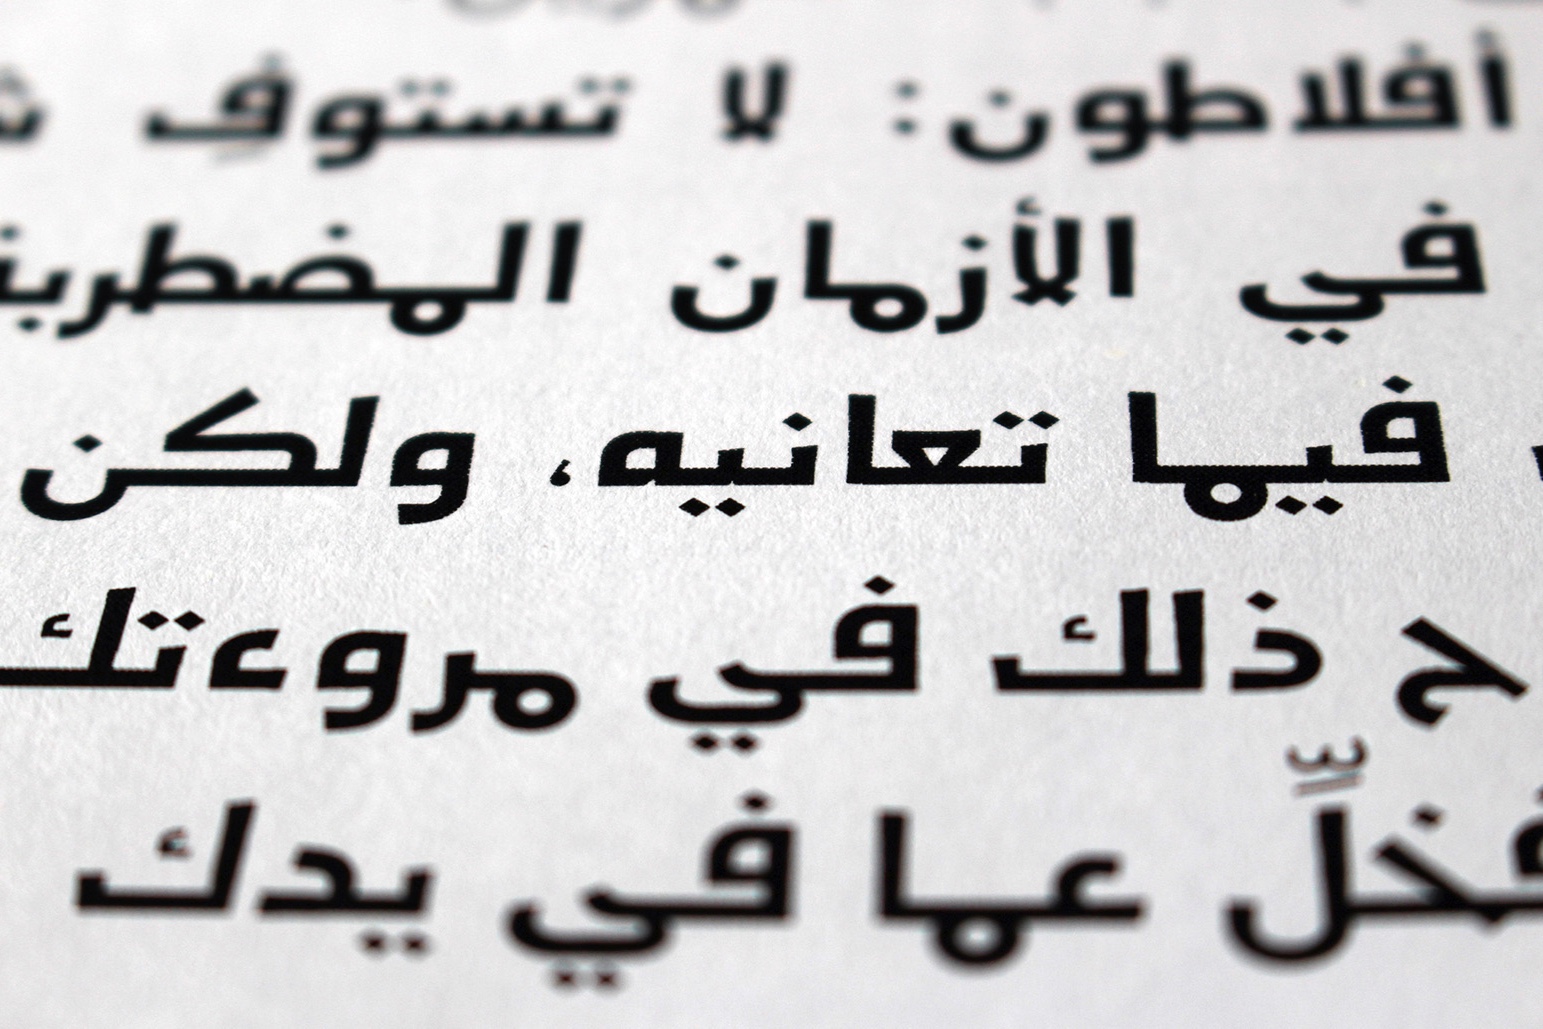 أفلاطون: لا تستوفِ
في الأزمان
فيما تعانيه، ولكن
ذلك في مروءتك
فخلِّ عما في يدك